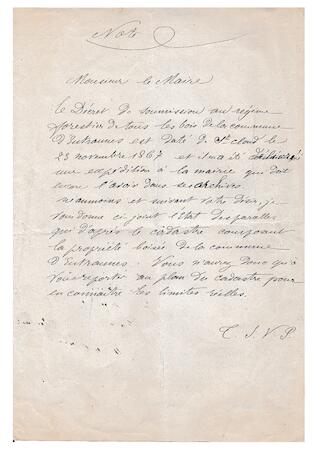 Note
Monsieur le Maire
Le Décret de soumission au régime
forestier de tous les bois de la commune
d'Entraunes est daté de St Cloud le
23 novembre 1867 et il m'a été délivré
une expédition à la mairie qui doit
l'avoir dans ses archives
néanmoins et suivant votre désir, je
vous donne ci joint l'état des parcelles
qui d'après le cadastre composent
la propriété boisée de la commune
d'Entraunes. Vous n'aurez donc qu'à
vous reporter au plan du cadastre pour
en connaître les limites réelles.
T. S. V. P.